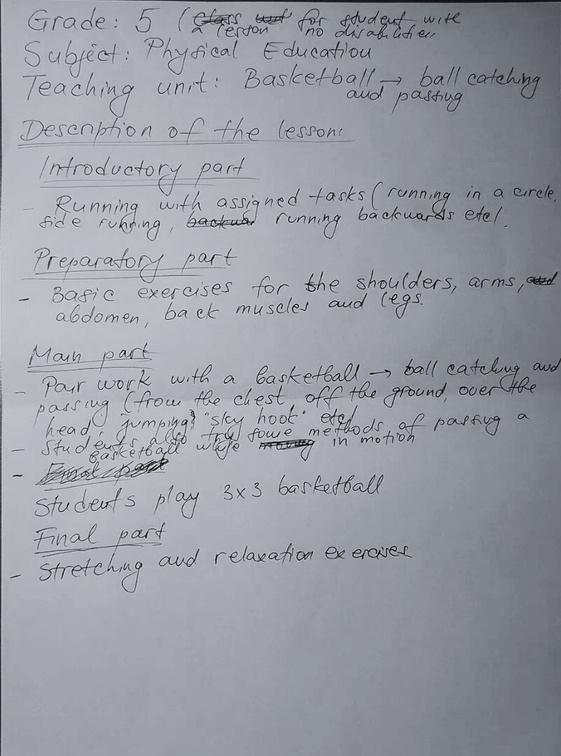 Grade: 5 (a lesson for student with
no disabilities
Subject: Physical Education
Teaching unit: Basketball → ball catching
and passing
Description of the lesson:
Introductory part
- Running with assigned tasks (running in a circle,
side running, running backwards etc).
Preparatory part
- Basic exercises for the shoulders, arms,
abdomen, back muscles and legs.
Main part
- Pair work with a basketball → ball catching and
passing (from the chest off the ground, over the
head, jumping, "sky hook" etc)
- Students also try some methods of passing a
basketball while in motion
-
Students play 3x3 basketball
Final part
- Stretching and relaxation exercises